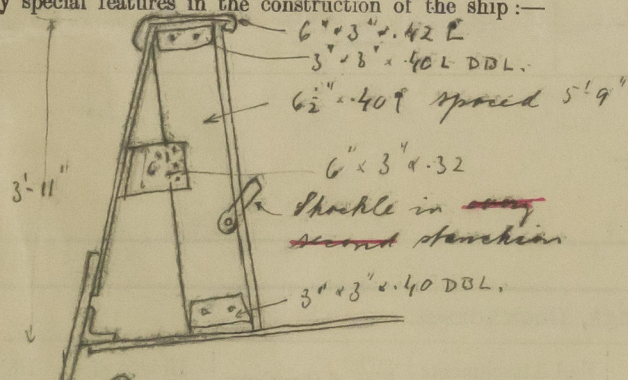 y special features in the construction of the ship :—
6" × 3" × .42 L
3" × 3" × .40 L DBL.
6½" × .40 spaced 5' 9"
3'- 11"
6" × 3" × .32
Shackle in every
second stanchion
3" × 3" × .40 DBL.